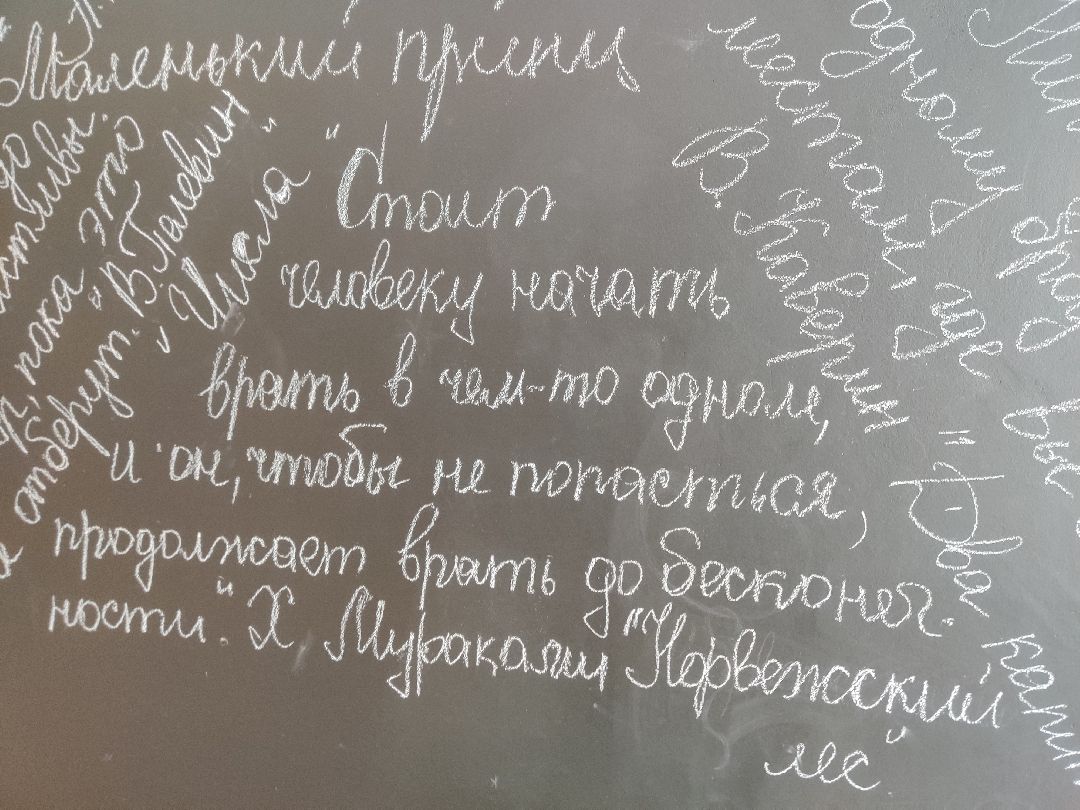 Маленький принц
"Стоит
человеку начать
врать в чем-то одном,
и он, чтобы не попасться,
продолжает врать до бесконеч-
ности." Х Мураками "Норвежский
лес"
пока это
отберут." В. Пелевин
"Числа"
одному
местам, где
В. Каверин "Два капи